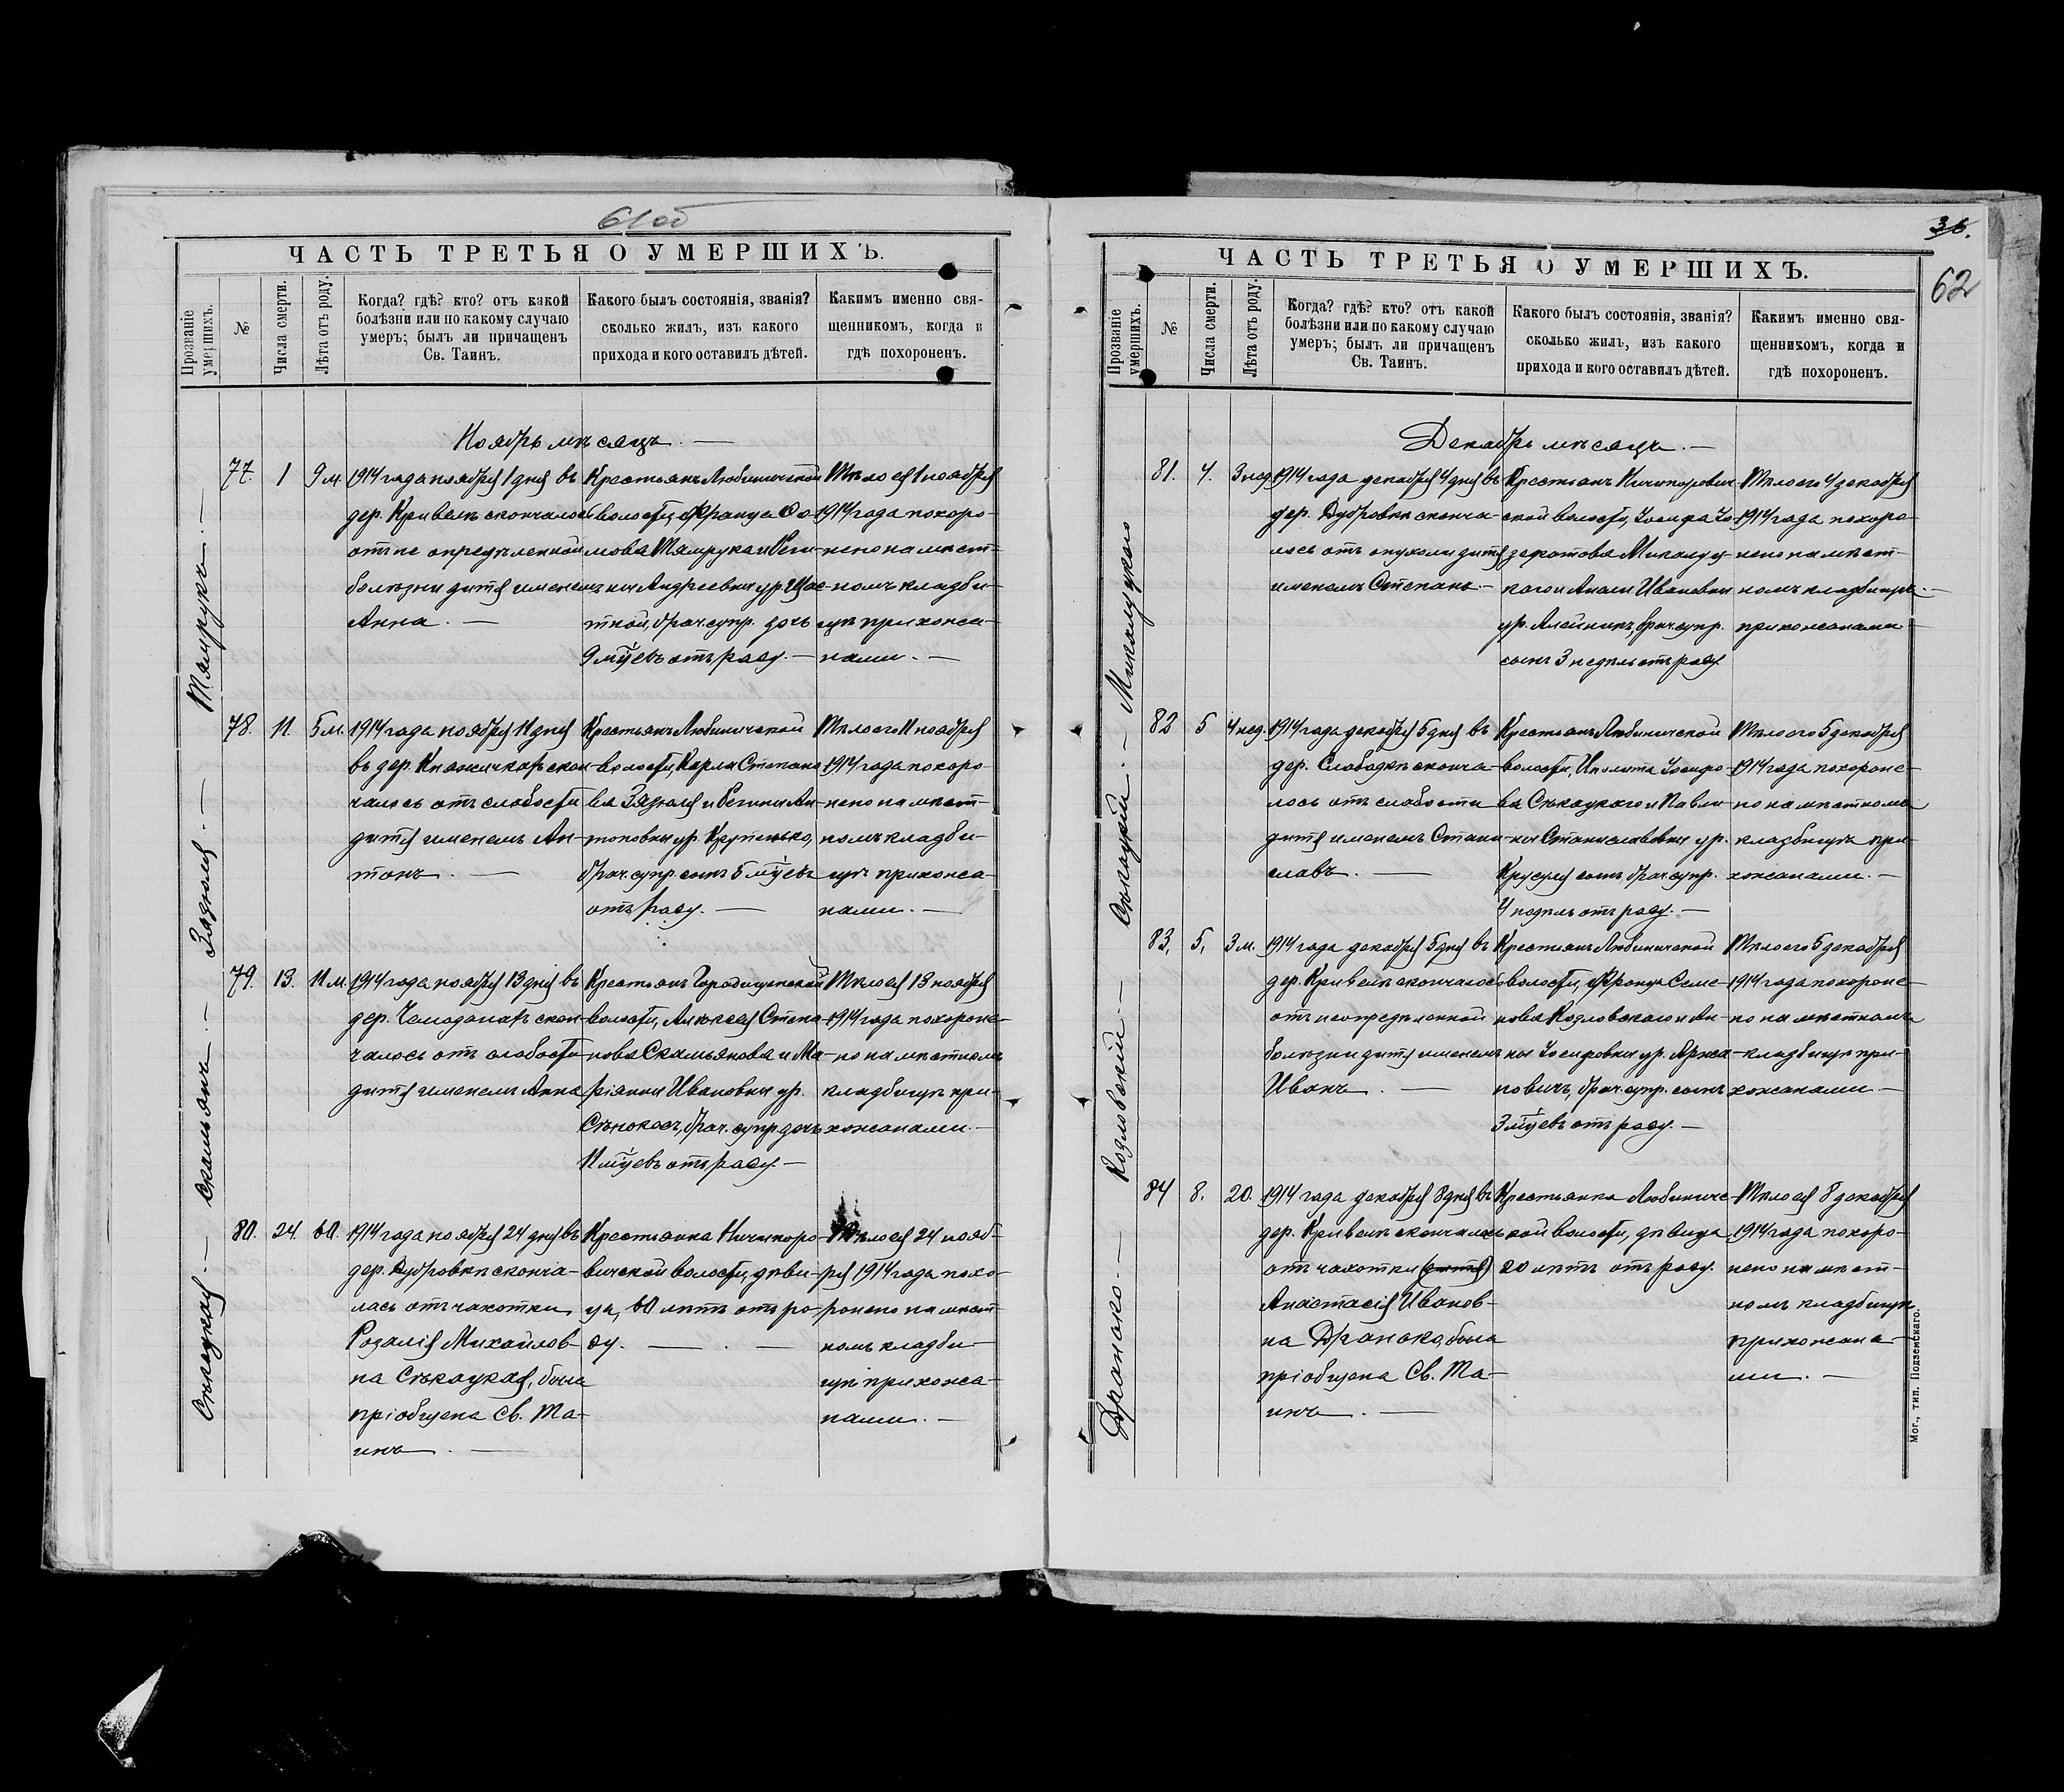 61 об
ЧАСТЬ ТРЕТЬЯ О УМЕРШИХЪ.
Прозваніе умершихъ.
№
Числа смерти.
Лѣта отъ роду.
Когда? гдѣ? кто? отъ какой
болѣзни или по какому случаю
умеръ; былъ ли причащенъ
Св. Таинъ.
Какого былъ состоянія, званія?
сколько жилъ, изъ какого
прихода и кого оставилъ дѣтей.
Какимъ именно свя-
щенникомъ, когда и
гдѣ похороненъ.
Ноябрь мѣсяцъ. —
77. 1 9 м.
1914 года ноября 1 дня въ
дер. Кривелѣ скончалось
отъ не опредѣленной
болѣзни дитя именемъ
Анна. —
Крестьянъ Любиничской
волости, Франца
и Реги-
ны Андреевны ур.
брач. супр. дочь
9 м̃цевъ отъ роду. —
Тѣло ея 1 ноября
1914 года похоро-
нено на мѣст-
номъ кладби-
щѣ прихожа-
нами. —
78. 11. 5 м.
1914 года ноября 11 дня
въ дер. скон-
чалось отъ слабости
дитя именемъ Ан-
тонъ. —
Крестьянъ Любиничской
волости, Карла Степано
ва Зязюля и Регины Ан-
тоновны ур. Крутенько,
брач. супр. сынъ 5 м̃цевъ
отъ роду. —
Тѣло его 11 ноября
1914 года похоро
нено на мѣст-
номъ кладби-
щѣ прихожа-
нами. —
79. 13. 11 м.
1914 года ноября 13 дня въ
дер. Чемоданахъ скон-
чалось отъ слабости
дитя именемъ Анна
Крестьянъ Городищенской
волости, Алексея Степа-
нова Скамьянова и Ма-
ріанны Ивановны ур.
Сѣнокосъ, брач. супр. дочь
11 м̃цевъ отъ роду —
Тѣло ея 13 ноября
1914 года похороне-
но на мѣстномъ
кладбищѣ при-
хожанами. —
80. 24. 60.
1914 года ноября 24 дня въ
дер. Дубровкѣ сконча-
лась отъ чахотки
Розалія Михайлов-
на Сѣкацкая, была
пріобщена Св. Та-
инъ. —
Крестьянка Ничипоро-
вичской волости, дѣви-
ца, 60 лѣтъ отъ ро-
ду. — . —
Тѣло ея 24 нояб-
ря 1914 года похо-
ронено на мѣст-
номъ кладби-
щѣ прихожа-
нами. —
Сѣкацкая. — Скамьянъ. — Зязюля. —
36.
62
ЧАСТЬ ТРЕТЬЯ О УМЕРШИХЪ.
Прозваніе умершихъ.
№
Числа смерти.
Лѣта отъ роду.
Когда? гдѣ? кто? отъ какой
болѣзни или по какому случаю
умеръ; былъ ли причащенъ
Св. Таинъ.
Какого былъ состоянія, званія?
сколько жилъ, изъ какого
прихода и кого оставилъ дѣтей.
Какимъ именно свя-
щенникомъ, когда и
гдѣ похороненъ.
Декабрь мѣсяцъ. —
81. 4. 3 нед.
1914 года декабря 4 дня въ
дер. Дубровкѣ сконча-
лось отъ опухоли дитя
именемъ Степанъ. —
Крестьянъ Ничипорович-
ской волости, Іосифа Іо-
зафатова Микалуц-
каго и Анны Ивановны
ур. Алейникъ, брач. супр.
сынъ 3 недѣль отъ роду
Тѣло его 4 декабря
1914 года похоро-
нено на мѣст-
номъ кладбищѣ. —
прихожанами
82 5 4 нед.
1914 года декабря 5 дня въ
дер. Слободкѣ сконча-
лось отъ слабости
дитя именемъ Стани-
славъ. —
Крестьянъ Любиничской
волости, Иполита Іосифо-
ва Сѣкацкаго и Павли-
ны Станиславовны ур.
сынъ, брач. супр.
4 недѣль отъ роду. —
Тѣло его 5 декабря
1914 года похороне-
но на мѣстномъ
кладбищѣ при-
хожанами. —
83, 5, 3 м.
1914 года декабря 5 дня въ
дер. Кривелѣ скончалось
отъ неопредѣленной
болѣзни дитя именемъ
Иванъ. —
Крестьянъ Любиничской
волости, Франца Семе-
нова Козловскаго и Ан-
ны Іосифовны ур. Яржа-
новичъ, брач. супр. сынъ
3 м̃цевъ отъ роду. —
Тѣло его 5 декабря
1914 года похороне-
но на мѣстномъ
кладбищѣ при-
хожанами —
84 8. 20.
1914 года декабря 8 дня въ
дер. Кривелѣ скончалась
отъ чахотки (дитя)
Анастасія Иванов-
на Дранько, была
пріобщена Св. Та-
инъ. —
Крестьянка Любинич-
ской волости, дѣвица
20 лѣтъ отъ роду.
Тѣло ея 8 декабря
1914 года похоро-
нено на мѣст-
номъ кладбищѣ
прихожана-
ми. —
Дранько. — Козловскій. — Сѣкацкій. — Микалуцкаго
Мог., тип. Подземскаго.